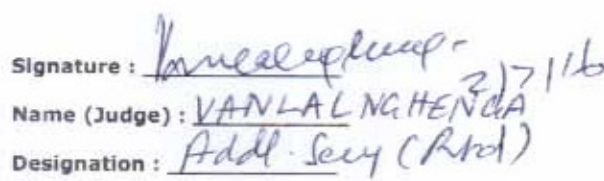 Signature :
2/7/16
Name (Judge) : VANLALNGHENGA
Designation : Addl. Secy (Rtd)